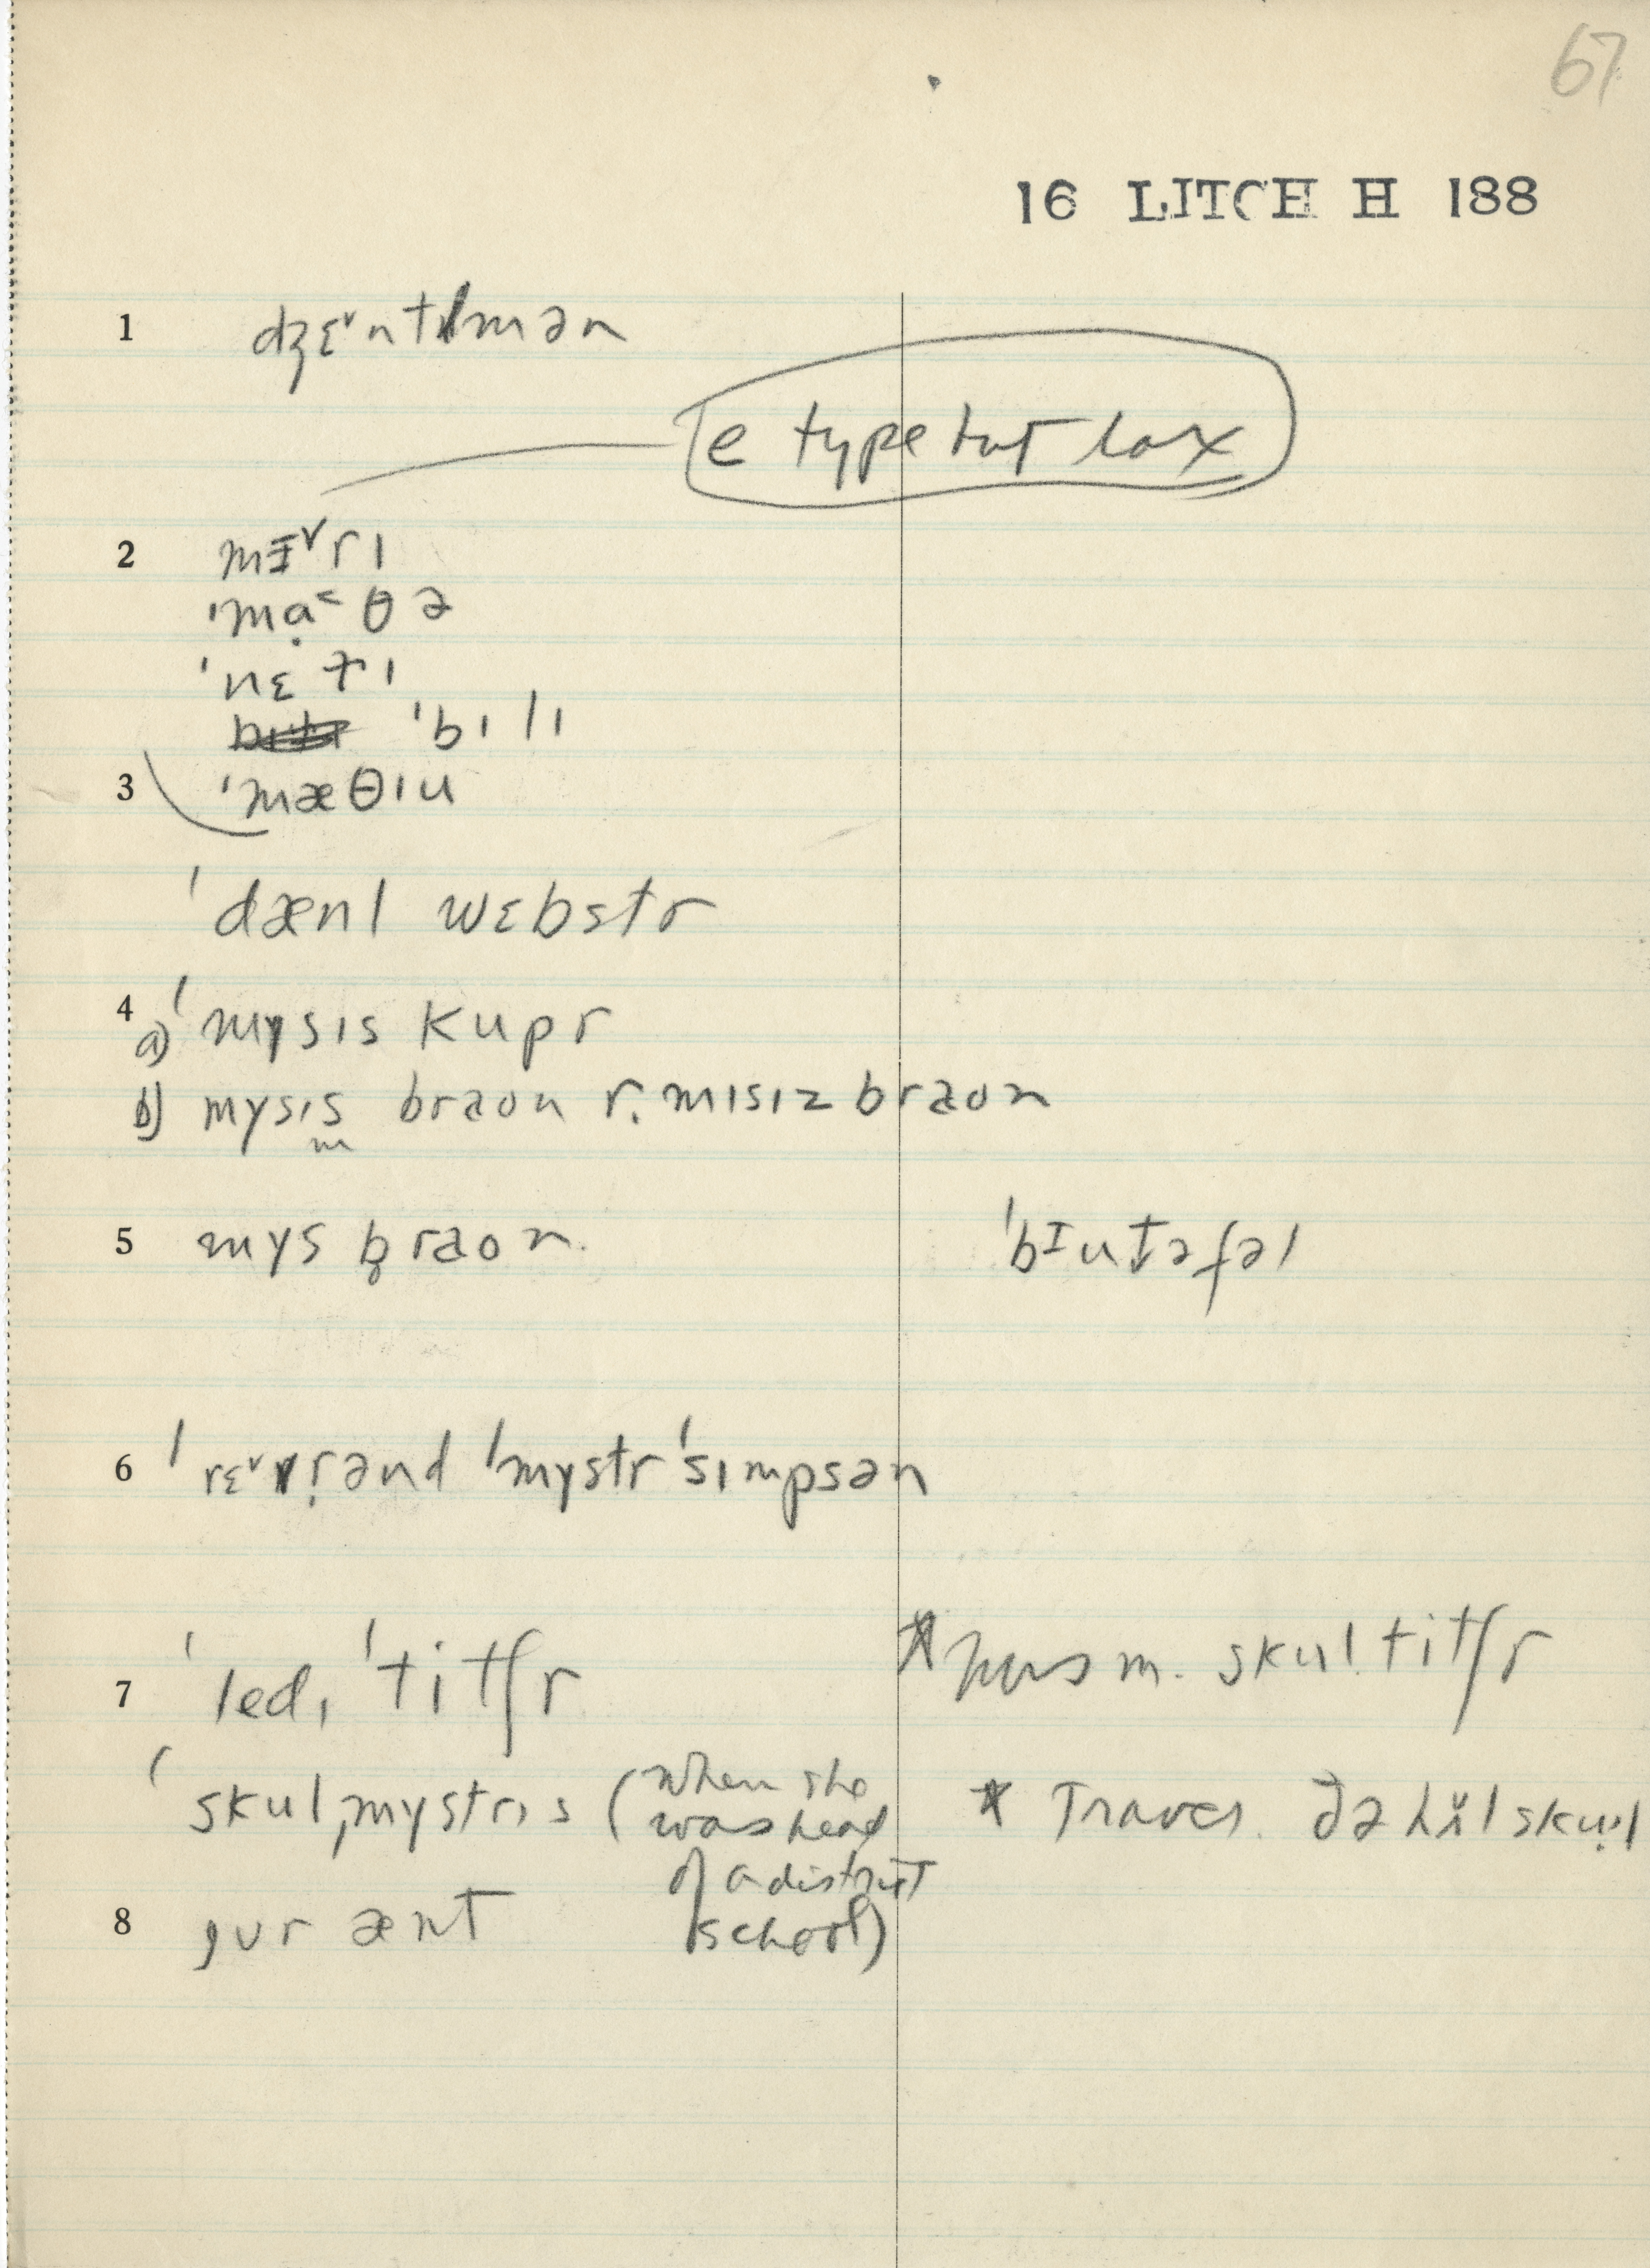 67
16 LITCH H 188
1 dʒɛ˅ntlmən
e type but lax
2 mɪ˅rɪ
ˈmạ˂θə
ˈnɛtɪ
ˈbɪlɪ
3 ˈmæθɪu
ˈdænl wɛbstr
4 a) ˈmysɪs kupr
b) mysɪs braon r. mɪsɪz braon
5 mys b̥raon. ˈbɪutəfəl
6 ˈrɛ˅vr̩ənd ˈmystr ˈsɪmpsən
7 ˈledɪ ˈtitʃr * hus m. skul titʃr
ˈskulˌmystrɪs (when she was head of a district school) * Traver. ðə hɪl skul
8 jur ænt